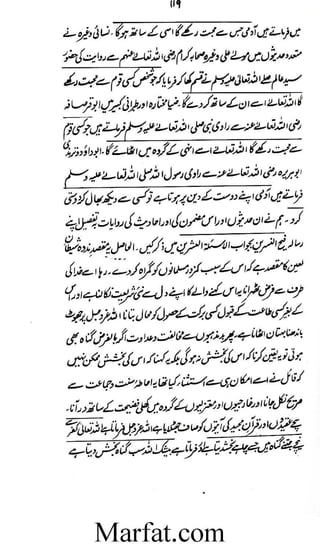 ۱۱۹
میں فرماتے ہیں آدمی جس سے محبت رکھے گا اسی کے ساتھ ہوگا۔ نسائی وغیرہ نے
متعدد حدیثوں میں مولے علی وغیرہ صحابہ کرام رضی اللہ تعالےٰ عنہم سے روایت کی حضور
سید عالم صلے اللہ تعالےٰ علیہ وسلم نے قسم کھا کر فرمایا کہ جو شخص کسی قوم سے محبت رکھے
گا اللہ تعالےٰ اسے ان کے ساتھ کردے گا۔ ضیا مختارہ اور طبرانی کبیر میں ابو قرصافہ
رضی اللہ تعالےٰ عنہ سے راوی نبی صلی اللہ تعالےٰ علیہ وسلم فرماتے ہیں جو کسی قوم
سے محبت رکھے گا اللہ تعالےٰ اسے انہی کے گروہ میں اٹھائے گا۔ ابو داؤد و ترمذی
ابو ہریرہ رضی اللہ تعالےٰ عنہ سے راوی رسول اللہ صلی اللہ تعالےٰ علیہ وسلم
فرماتے ہیں آدمی اپنے دوست کے دین پر ہوتا ہے تو کسی سے دیکھ بھال کر دوستی
کرو۔ ہم نے ان حدیثوں اور اس مضمون کی اور احادیث کی روایات بتفصیل اپنے
رسالہ میں ذکر کیں۔ الحاصل یہ مقصد ندوہ شیطان
لعین کا مقصد ہے کہ اس کے سبب کمزور مسلمانوں کو گمراہ کردے۔ رہا اسے خدا کی
طرف سے فرض ٹھہرانا یہ اس کے کہنے والے کا اپنے دل سے نئی شریعت نکالنا ہے اور
کے بغیر کسی طاعت کے قبول کسی برکت کے حصول کو محال بتانا اللہ عزوجل پر جھوٹ
باندھنا بہتان اٹھانا ہے۔ پھر بدمذہبوں سے مخالفت و عداوت اگر بالفرض گناہ بھی
ہوتی تو یہ یقین کرنا کہ اس کی بخشش نہ ہوگی بلکہ یہ کہنا کہ اس کی بخشش ممکن نہیں
کہ قائل نے اسے امکان ہی سے استثنا کیا تھا یہ احاطۂ سنت و جماعت سے
صریح نکل جانا اور خارجیوں اور معتزلیوں کے گروہ میں کھلی فضیحت کے ساتھ در آنا۔
سچے عقیدوں اور قرآن مجید کی آیتوں کو صاف جھٹلانا ہے اللہ عزوجل فرماتا ہے اللہ تعالی کفر سے
نیچے جتنے گناہ ہیں جسے چاہے بخش دیتا ہے اور فرماتا ہے بیشک اللہ سب گناہ بخش دیتا ہے
Marfat.com